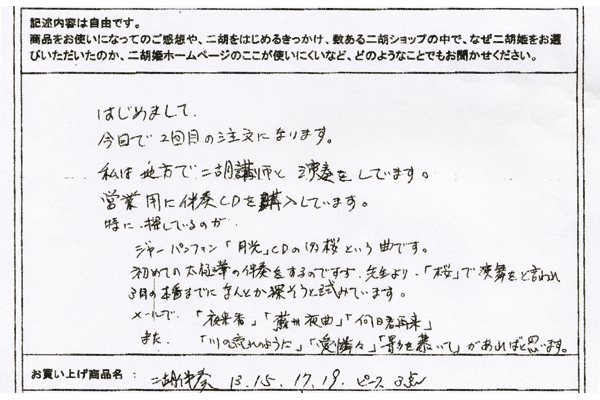 記述内容は自由です。
商品をお使いになってのご感想や、二胡をはじめるきっかけ、数ある二胡ショップの中で、なぜ二胡姫をお選
びいただいたのか、二胡姫ホームページのここが使いにくいなど、どのようなことでもお聞かせください。
はじめまして、
今回で2回目の注文になります。
私は地方で二胡講師と演奏をしています。
営業用に伴奏CDを購入しています。
特に探しているのが
ジャー・パンファン「月光」CDの内桜という曲です。
初めての太極拳の伴奏をするのですが、先生より、「桜」で演舞をと言われ
3月の本番までになんとか探そうと試みています。
メールで、「夜来香」「蘇州夜曲」「何日君再来」
また、「川の流れのように」「愛燦々」「影を慕いて」があればと思います。
お買い上げ商品名：
二胡伴奏 13、15、17、19、ピース 3点